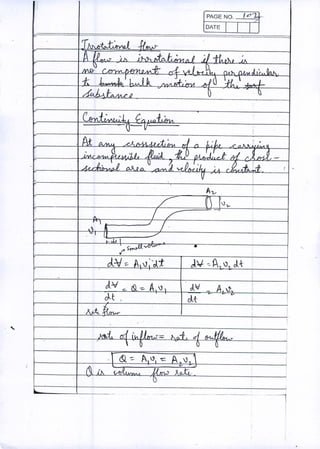 PAGE NO.
DATE
Irrotational flow
A flow is irrotational if there is
no component of velocity perpendicular
to bulk motion of the
substance.
Continuity Equation
At any crosssection of a pipe carrying
incompressible fluid, the product of cross-
sectional area and velocity is constant.
A₂
υ₂
A₁
υ₁
small volume
dV = A₁υ₁dt dV = A₂υ₂ dt
dV/dt = Q = A₁υ₁ dV/dt = A₂υ₂
flow
rate of inflow = rate of outflow
Q = A₁υ₁ = A₂υ₂
Q is volume flow rate.